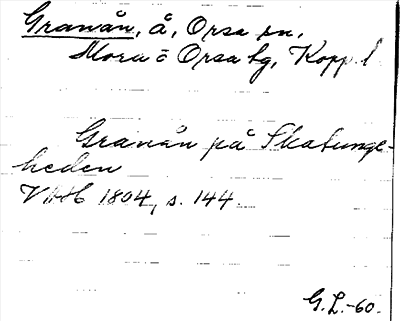 Granån, å, Orsa sn,
Mora o Orsa tg, Kopp. l
Granån på Skatunge-
heden
VAH 1804, s. 144.
G.L.-60.